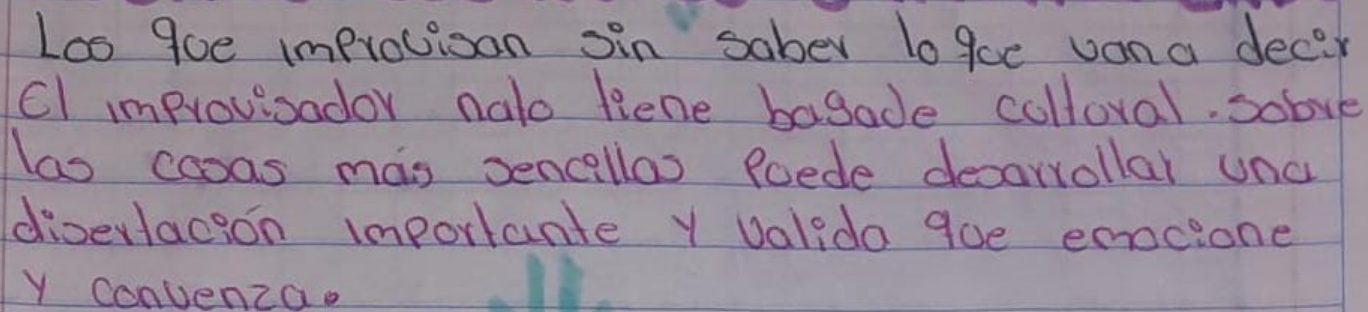 Los que improvisan sin saber lo que van a decir
El improvisador nato tiene bagade cultural. sobre
las cosas más sencillas puede desarrollar una
disertación importante y valida que emocione
y convenza.